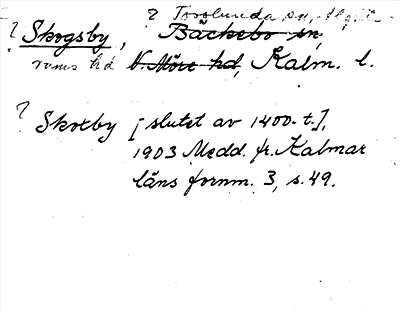 ? Torslunda sn, Algut-
? Skogsby, Bäckebo sn,
rums hd N. Möre hd, Kalm. l.
? Skotby [slutet av 1400-t.],
1903 Medd. fr. Kalmar
läns fornm. 3, s. 49.